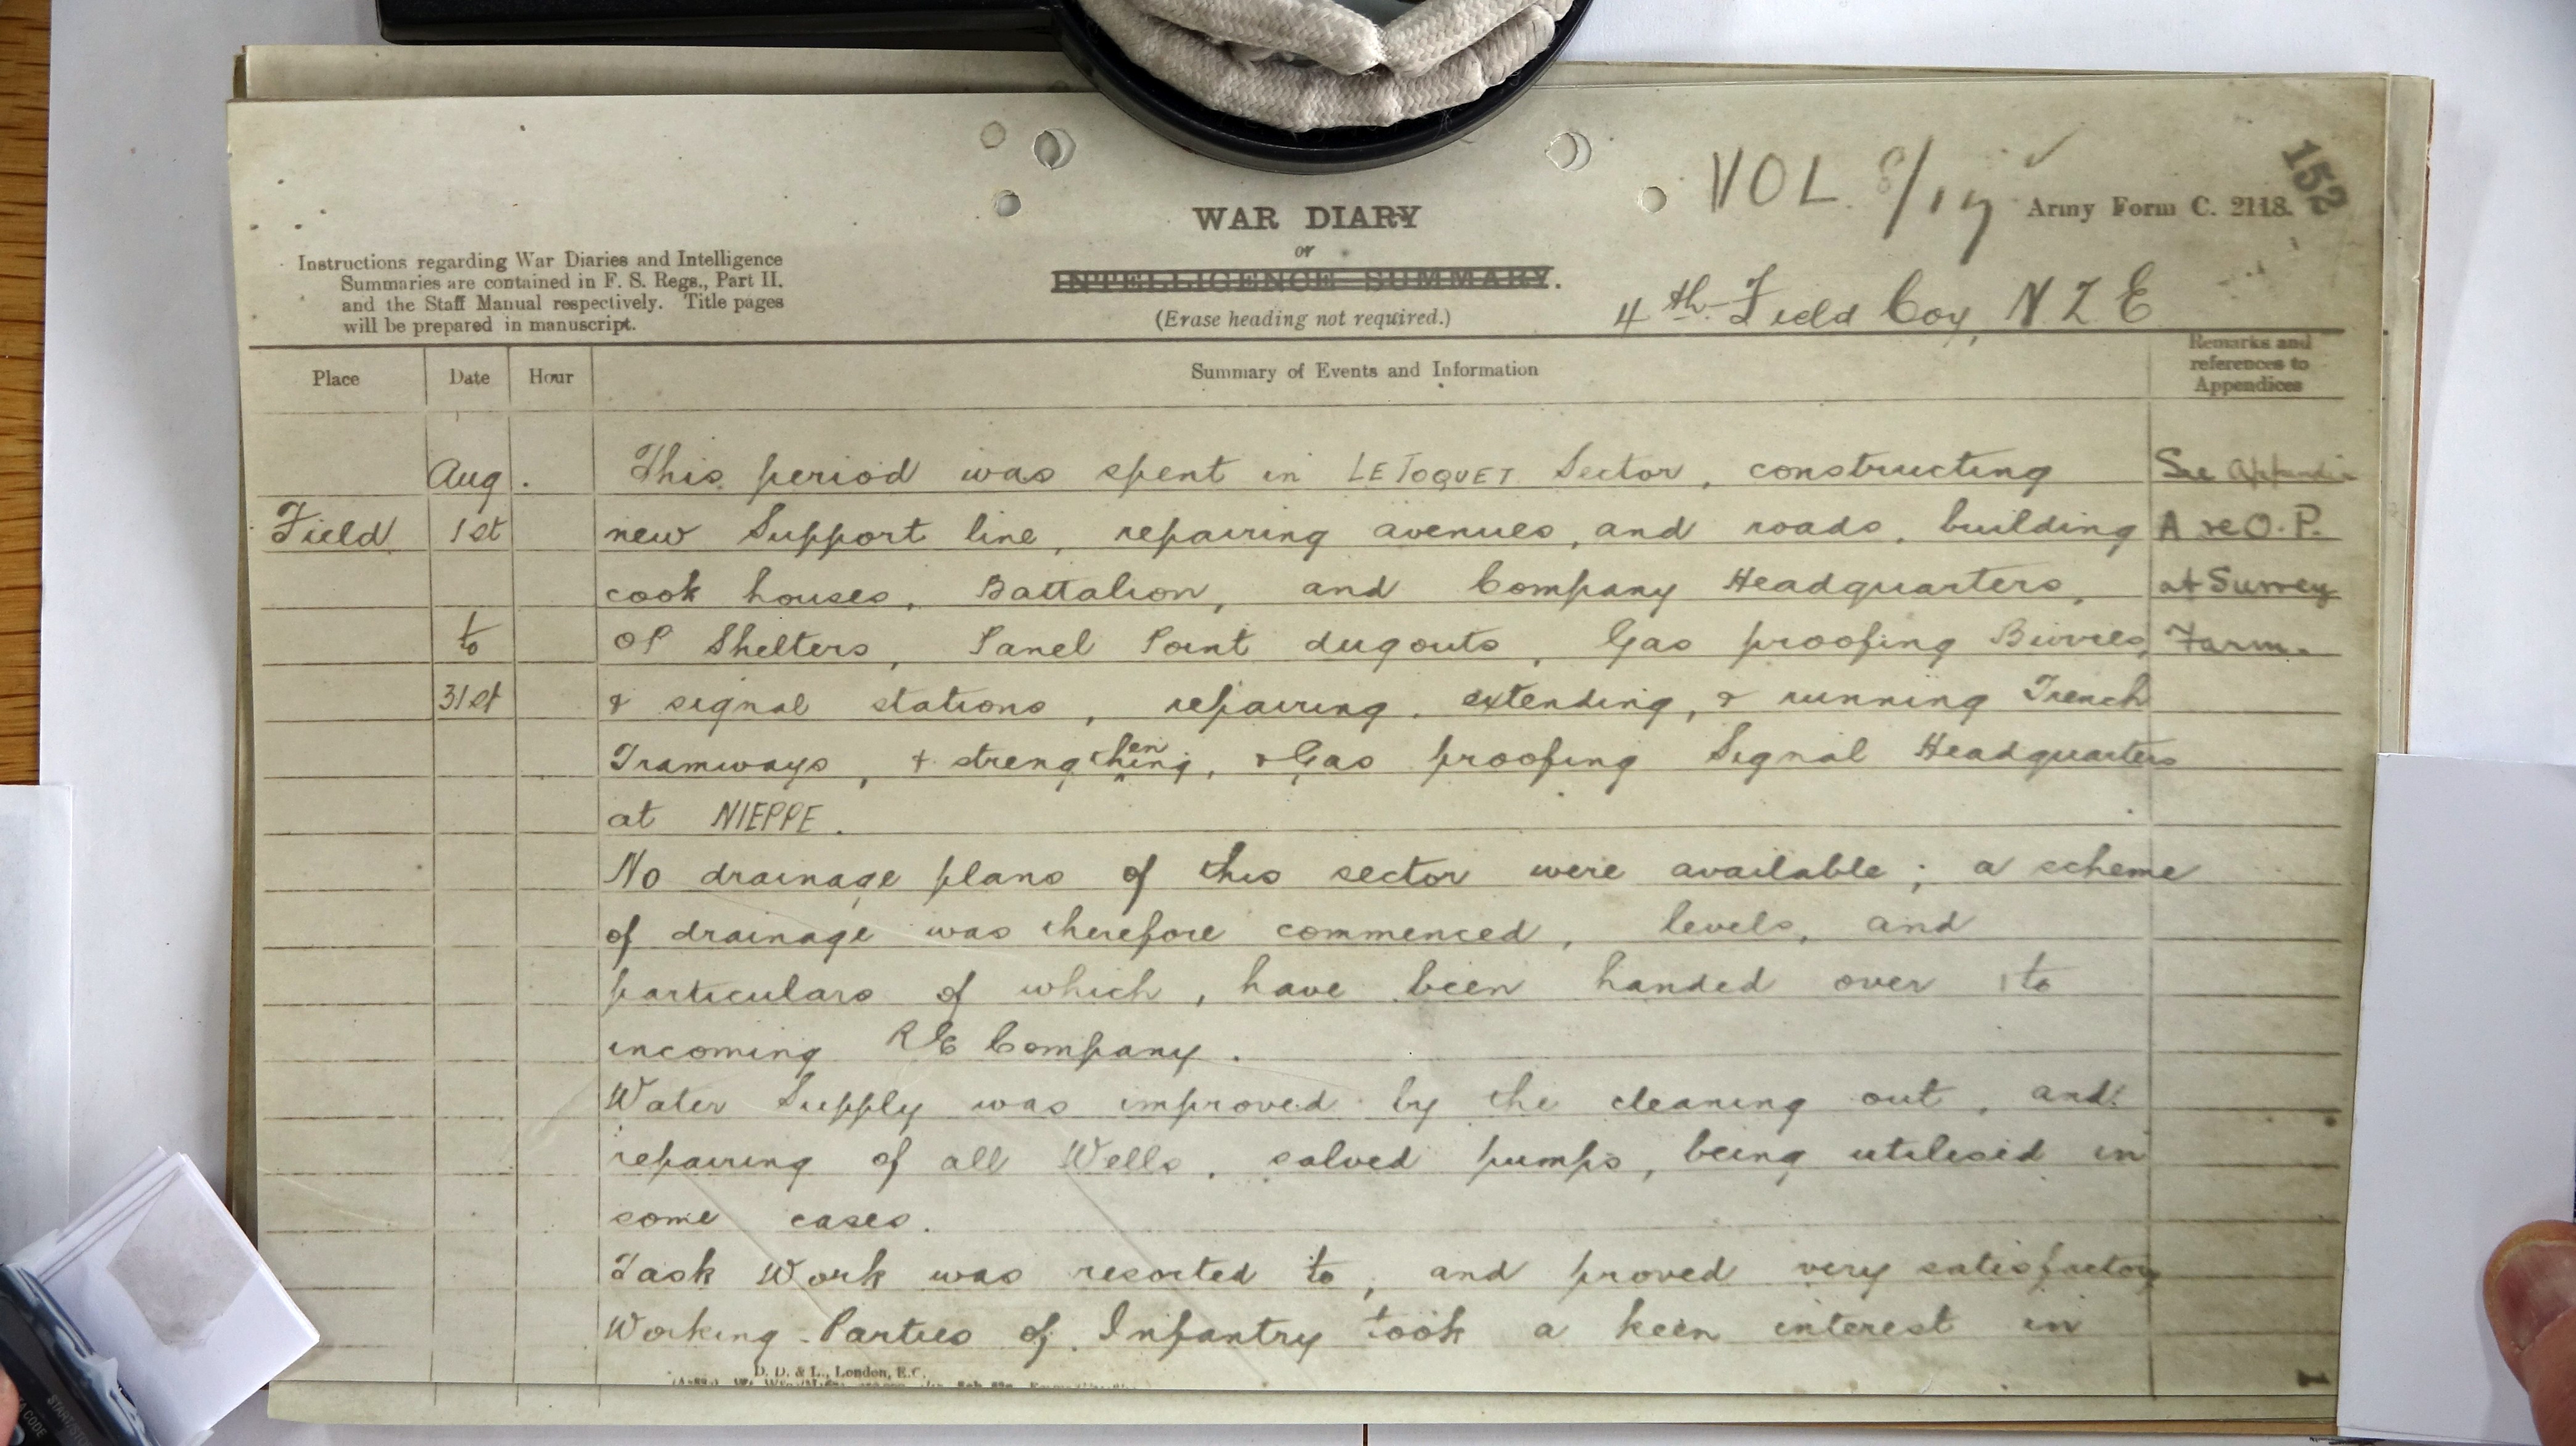 152
VOL 8/17
Army Form C. 2118.
WAR DIARY
or
INTELLIGENCE SUMMARY.
(Erase heading not required.)
4th Field Coy, N Z E
Instructions regarding War Diaries and Intelligence
Summaries are contained in F. S. Regs., Part II.
and the Staff Manual respectively. Title pages
will be prepared in manuscript.
Place Date Hour Summary of Events and Information Remarks and references to Appendices
Aug. This period was spent in LE TOQUET Sector, constructing See Appendix
Field 1st new Support line, repairing avenues, and roads, building A re O.P.
cook houses, Battalion, and Company Headquarters, at Surrey
to OP Shelters, Panel Point dugouts, Gas proofing Bivvies, Farm.
31st & signal stations, repairing, extending, & running Trench
Tramways, & strengthening, & Gas proofing Signal Headquarters
at NIEPPE.
No drainage plans of this sector were available; a scheme
of drainage was therefore commenced, levels, and
particulars of which, have been handed over to
incoming RE Company.
Water Supply was improved by the cleaning out, and
repairing of all Wells, salved pumps, being utilised in
some cases.
Task Work was resorted to, and proved very satisfactory
Working Parties of Infantry took a keen interest in
D. D. & L., London, E.C.
1